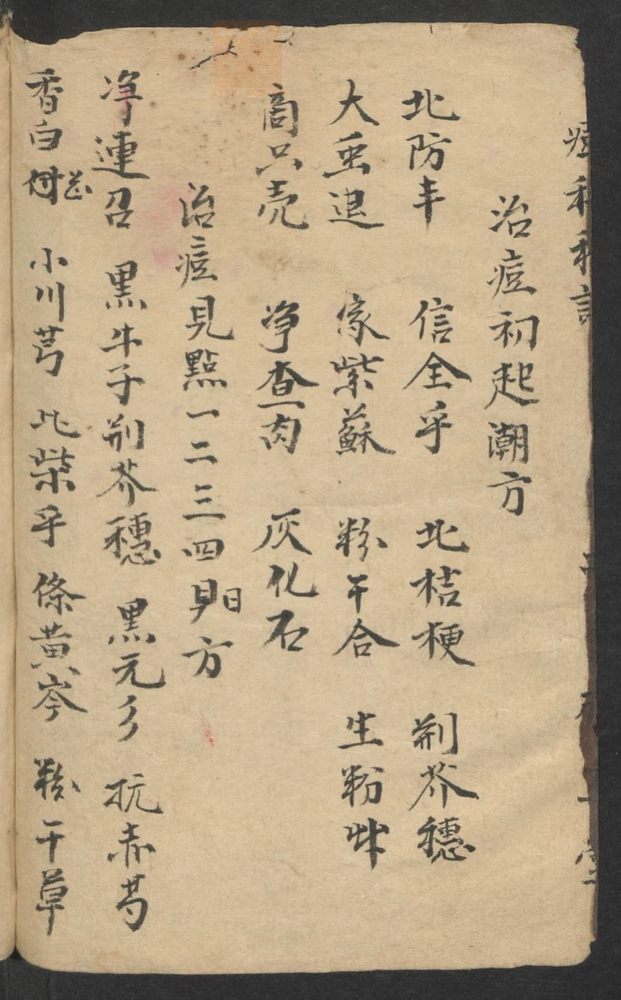 治痘初起潮方
北防丰 信全乎 北桔梗 荆芥穗
大虫退 家紫蘇 粉干合 生粉艸
商只壳 净查肉 灰化石
治痘見點一二三四日方
净連召 黑牛子 荆芥穗 黑元彡 抗赤芍
香白芷 小川芎 北柴乎 條黃岑 粉干草